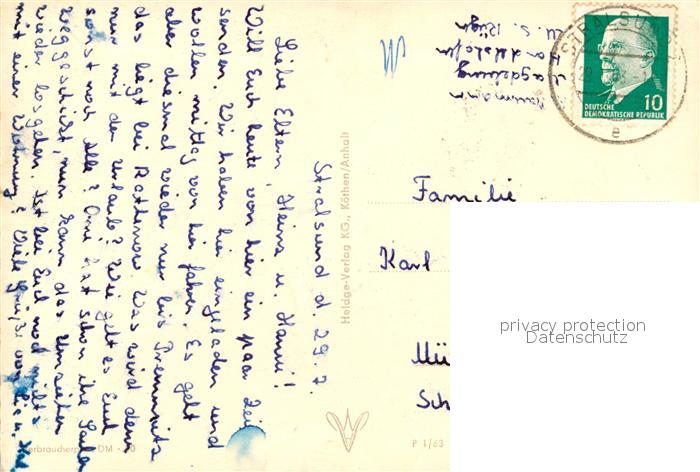 Stralsund d. 29. 7.
Liebe Eltern, Heinz u. Hanni!
Will Euch heute von hier ein paar Zeilen
senden. Wir haben hier eingeladen und
wollen mittag von hier fahren. Es geht
aber diesmal wieder nur bis Premnitz
das liegt bei Rathenow. Was wird denn
nur mit den Urlaub? Wie geht es Euch
sonst noch Alle? Omi hat schon ihre Sachen
weggeschickt, nun kann das Umziehen
wieder losgehen. Ist bei Euch noch nichts
mit einer Wohnung? Viele Grüße von
Verbraucherpr. DM -,20
Heldge-Verlag KG., Köthen/Anhalt
P 1/63
M. S. Rügen
Magdeburg
STRALSUND
29
e
DEUTSCHE
DEMOKRATISCHE REPUBLIK
10
Familie
Karl
Mü
Sch
privacy protection
Datenschutz